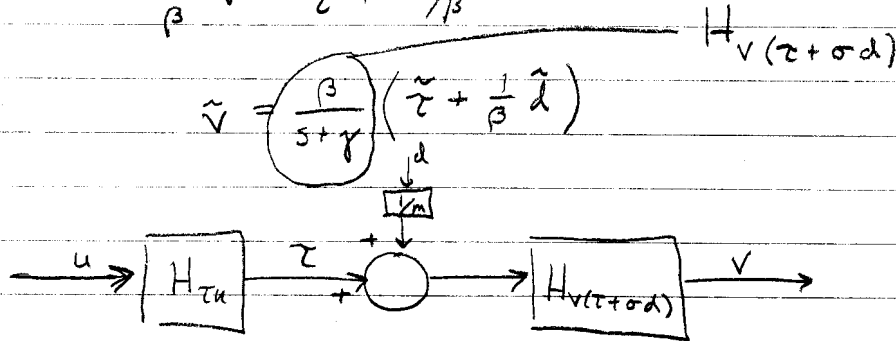 H_{v(τ+σd)}
ṽ = β/(s+γ) (τ̃ + 1/β d̃)
d
1/m
u H_{τu} τ + + H_{v(τ+σd)} v